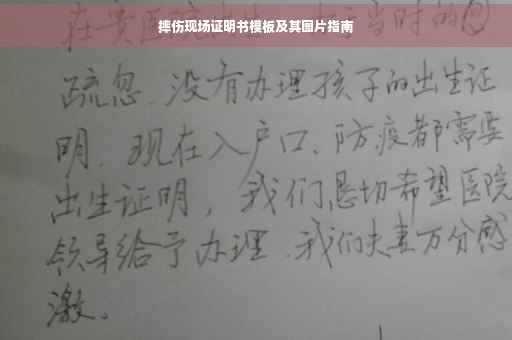 摔伤现场证明书模板及其图片指南
在贵医院出生,由于当时的
疏忽、没有办理孩子的出生证
明、现在入户口、防疫都需要
出生证明，我们恳切希望医院
领导给予办理、我们夫妻万分感
激。